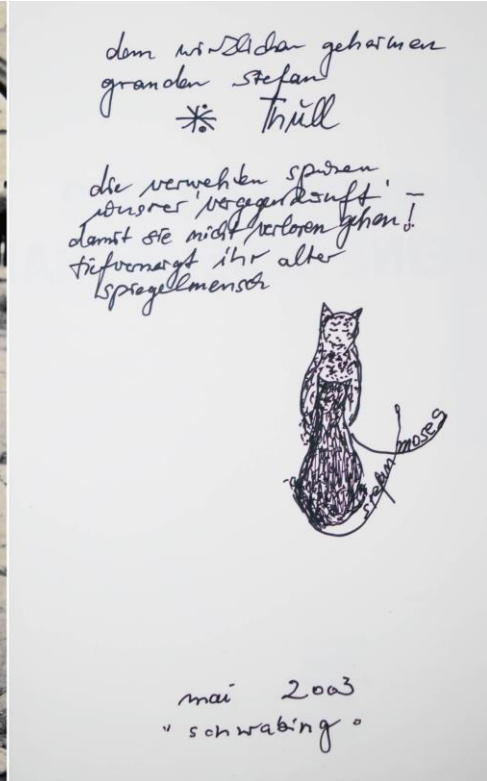 dem wirklichen geheimen
granden stefan
Thüll
die verwehten spuren
unsrer 'vergegenkunft' –
damit sie nicht verloren gehen!
tiefverneigt ihr alter
spiegelmensch
stefan moses
mai 2003
"schwabing"